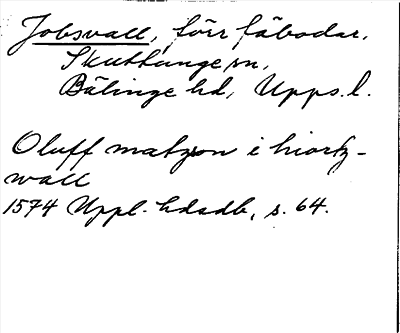 Jobsvall, förr fäbodar,
Skuttunge sn,
Bälinge hd, Upps. l.
Oluff matzson i hiortz-
wall
1574 Uppl. hdsdb, s. 64.